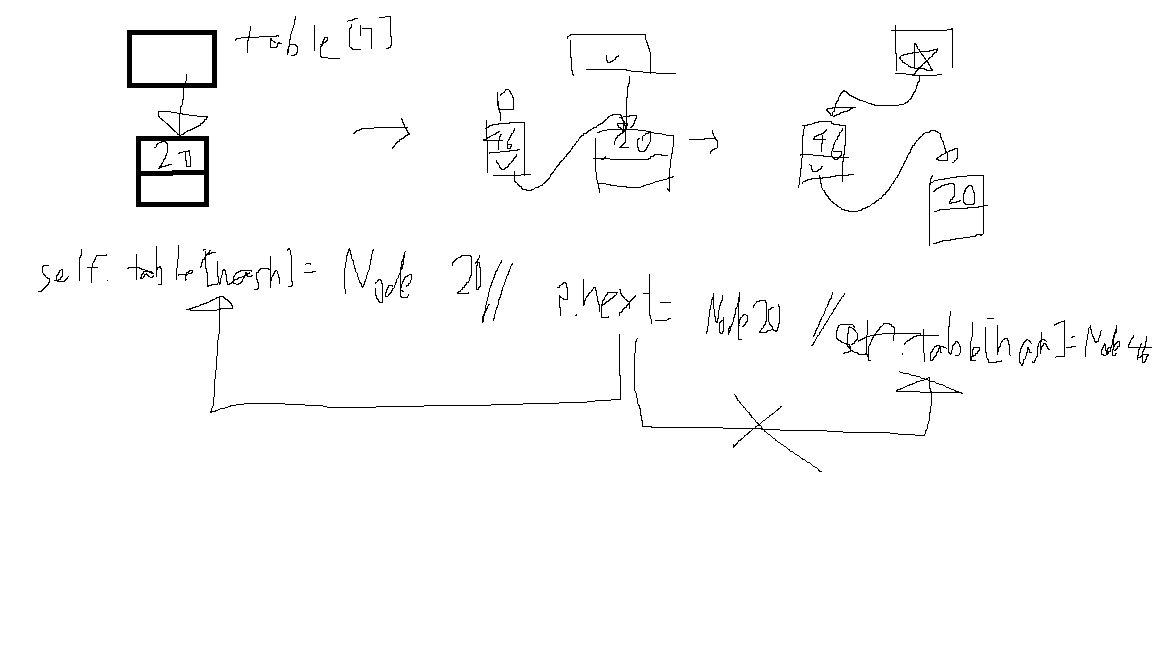 table[7]
20
p
46
20
46
20
self.table[hash] = Node 20 //
p.next = Node 20 //
self.table[hash] = Node 46